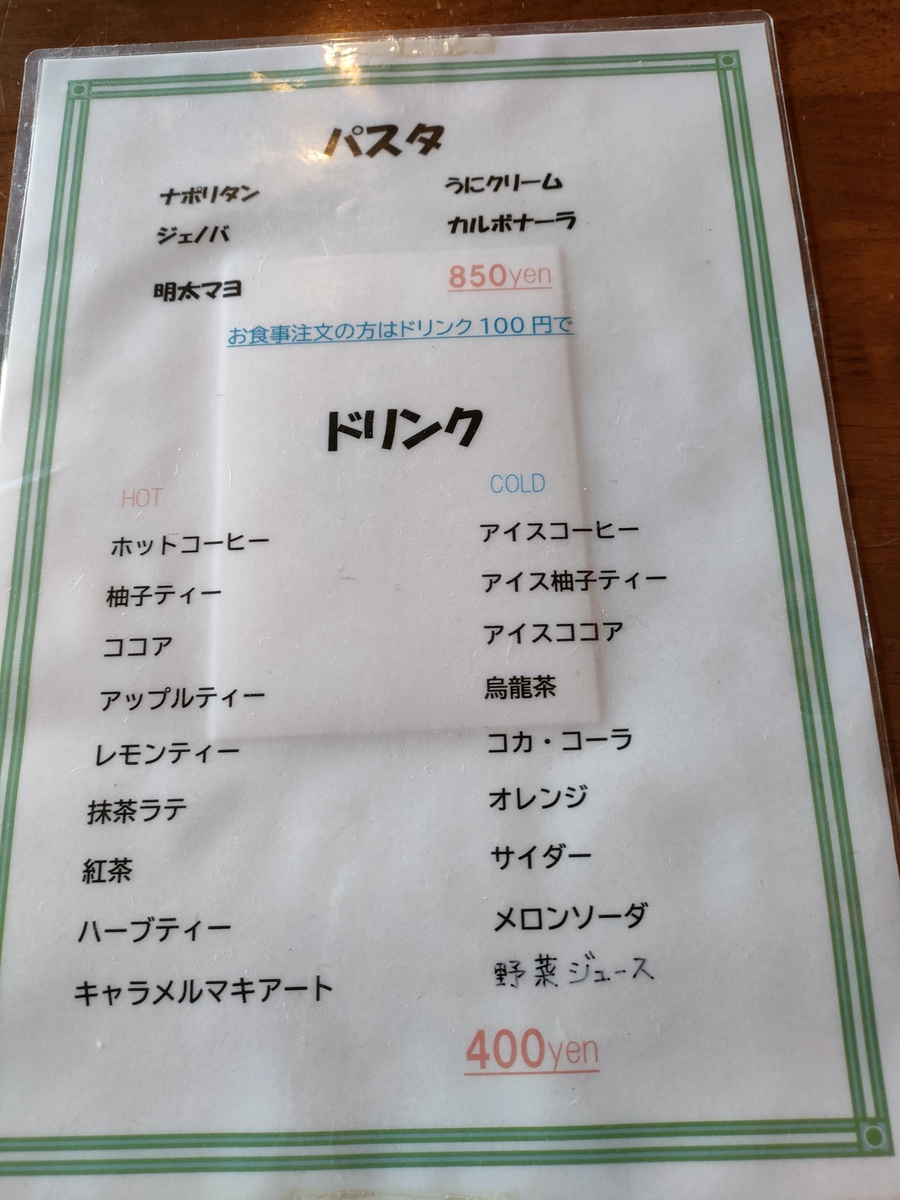 パスタ
ナポリタン
うにクリーム
ジェノバ
カルボナーラ
明太マヨ
850yen
お食事注文の方はドリンク100円で
ドリンク
HOT
COLD
ホットコーヒー
アイスコーヒー
柚子ティー
アイス柚子ティー
ココア
アイスココア
アップルティー
烏龍茶
レモンティー
コカ・コーラ
抹茶ラテ
オレンジ
紅茶
サイダー
ハーブティー
メロンソーダ
キャラメルマキアート
野菜ジュース
400yen